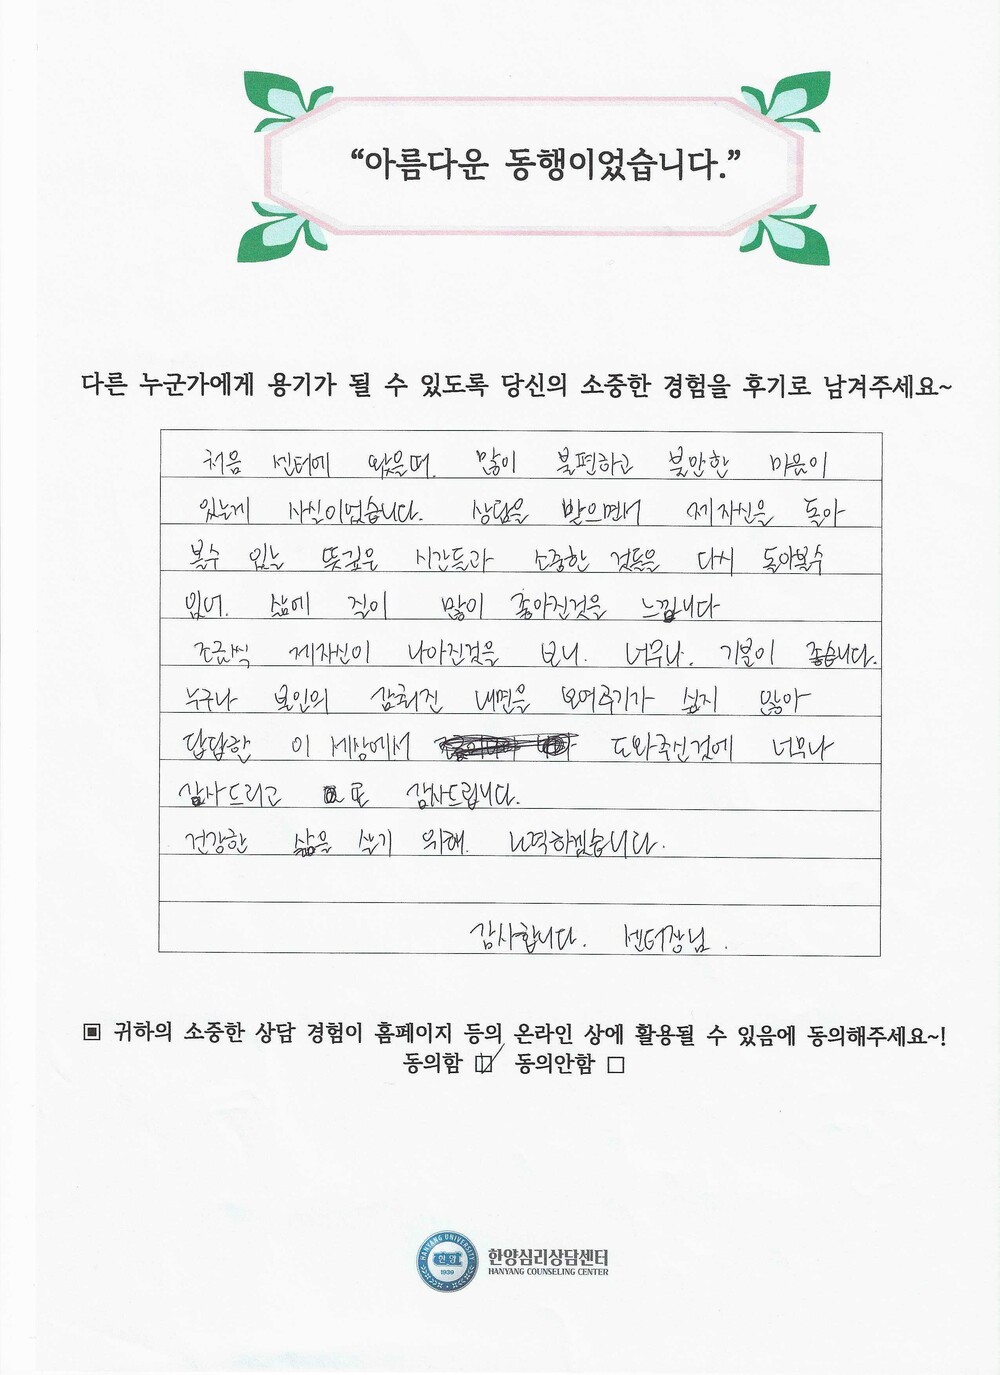 “아름다운 동행이었습니다.”
다른 누군가에게 용기가 될 수 있도록 당신의 소중한 경험을 후기로 남겨주세요~
처음 센터에 왔을때. 많이 불편하고 불안한 마음이
있는게 사실이었습니다. 상담을 받으면서 제 자신을 돌아
볼수 있는 뜻깊은 시간들과 소중한 것들을 다시 돌아볼수
있어. 삶에 질이 많이 좋아진것을 느낍니다
조금씩 제자신이 나아진것을 보니. 너무나. 기분이 좋습니다.
누구나 본인의 감춰진 내면을 보여주기가 쉽지 않아
답답한 이 세상에서 도와주신것에 너무나
감사드리고 또 감사드립니다.
건강한 삶을 살기 위해. 노력하겠습니다.
감사합니다. 센터장님.
▣ 귀하의 소중한 상담 경험이 홈페이지 등의 온라인 상에 활용될 수 있음에 동의해주세요~!
동의함 ☑ 동의안함 □
HANYANG UNIVERSITY
한양
1939
한양심리상담센터
HANYANG COUNSELING CENTER